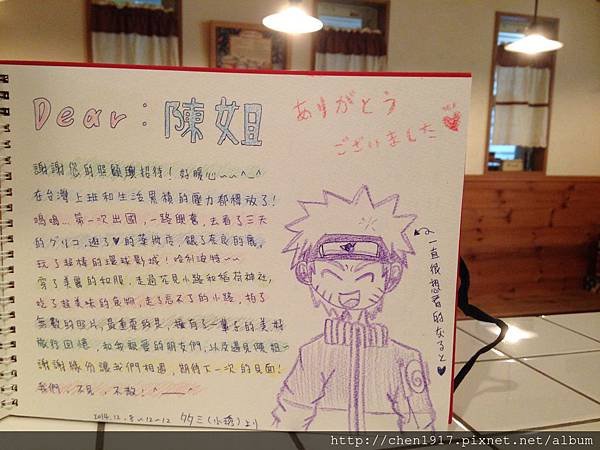 Dear：陳姐
ありがとう
ございました
謝謝您的照顧與招待！好暖心~~^_^
在台灣上班和生活累積的壓力都釋放了！
嗚嗚…第一次出國，一路興奮，去看了三天
的グリコ，逛了♥的藥妝店，餵了奈良的鹿，
玩了超棒的環球影城！哈利波特~~
穿了美麗的和服，走過花見小路和稻荷神社，
吃了超美味的食物，走了忘不了的小路，拍了
無數的照片，最重要的是，擁有了一輩子的美好
旅行回憶，和我親愛的朋友們，以及遇見陳姐~
謝謝緣分讓我們相遇，期待下一次的見面！
我們，不見，不散！^___^
2014.12.8~12~12 (小璐)より
一直很想看的なると♥
http://chen1917.pixnet.net/album